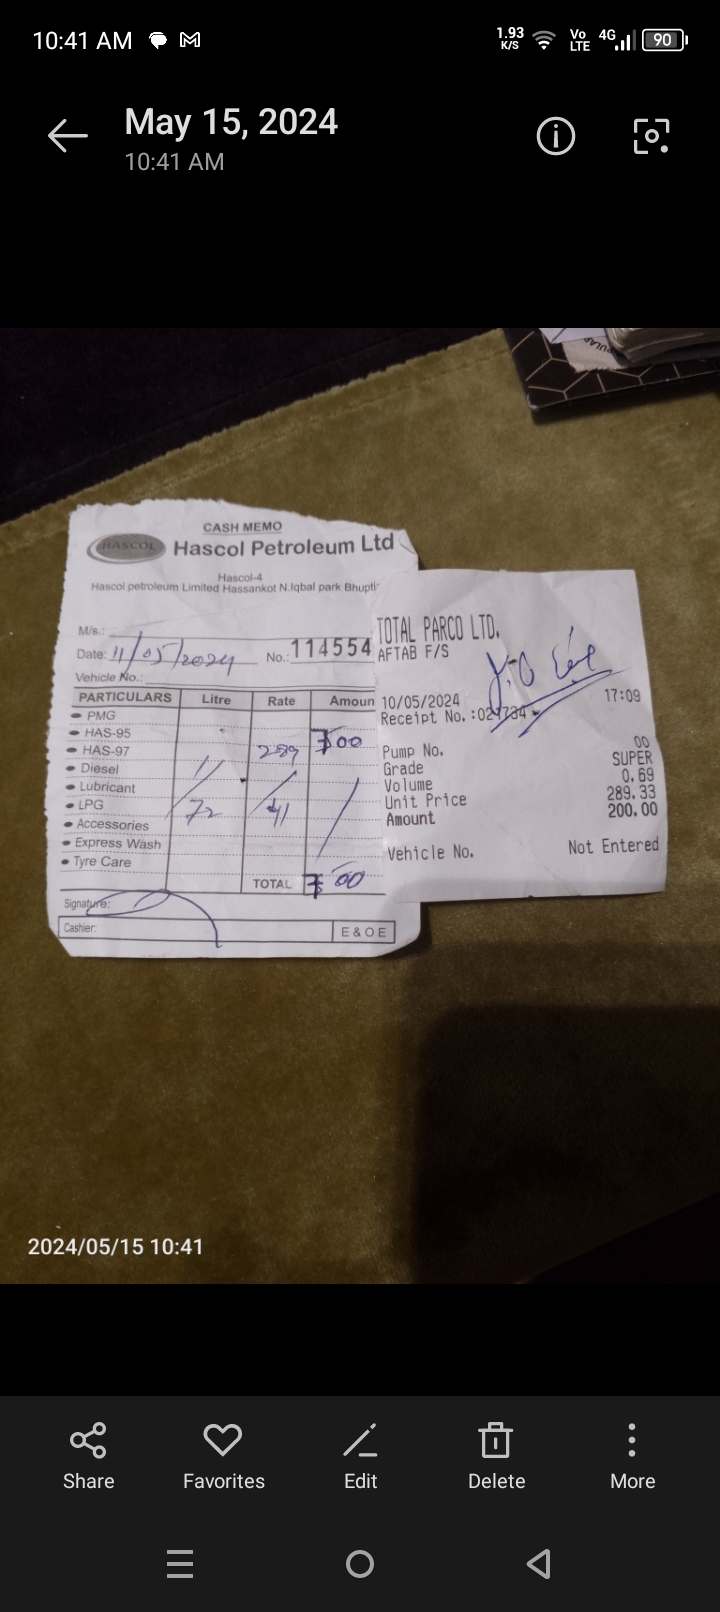 10:41 AM
1.93 K/S Vo LTE 4G 90
May 15, 2024
10:41 AM
CASH MEMO
HASCOL Hascol Petroleum Ltd
Hascol-4
Hascol petroleum Limited Hassankot N.Iqbal park Bhupti
M/s.:
Date: 11/05/2024 No.: 114554
Vehicle No.:
PARTICULARS Litre Rate Amoun
PMG
HAS-95 700
HAS-97 289
Diesel
Lubricant
LPG 72 41
Accessories
Express Wash
Tyre Care
TOTAL 700
Signature:
Cashier: E & O E
TOTAL PARCO LTD.
AFTAB F/S
10/05/2024 17:09
Receipt No. :021734
Pump No. 00
Grade SUPER
Volume 0.69
Unit Price 289.33
Amount 200.00
Vehicle No. Not Entered
2024/05/15 10:41
Share Favorites Edit Delete More